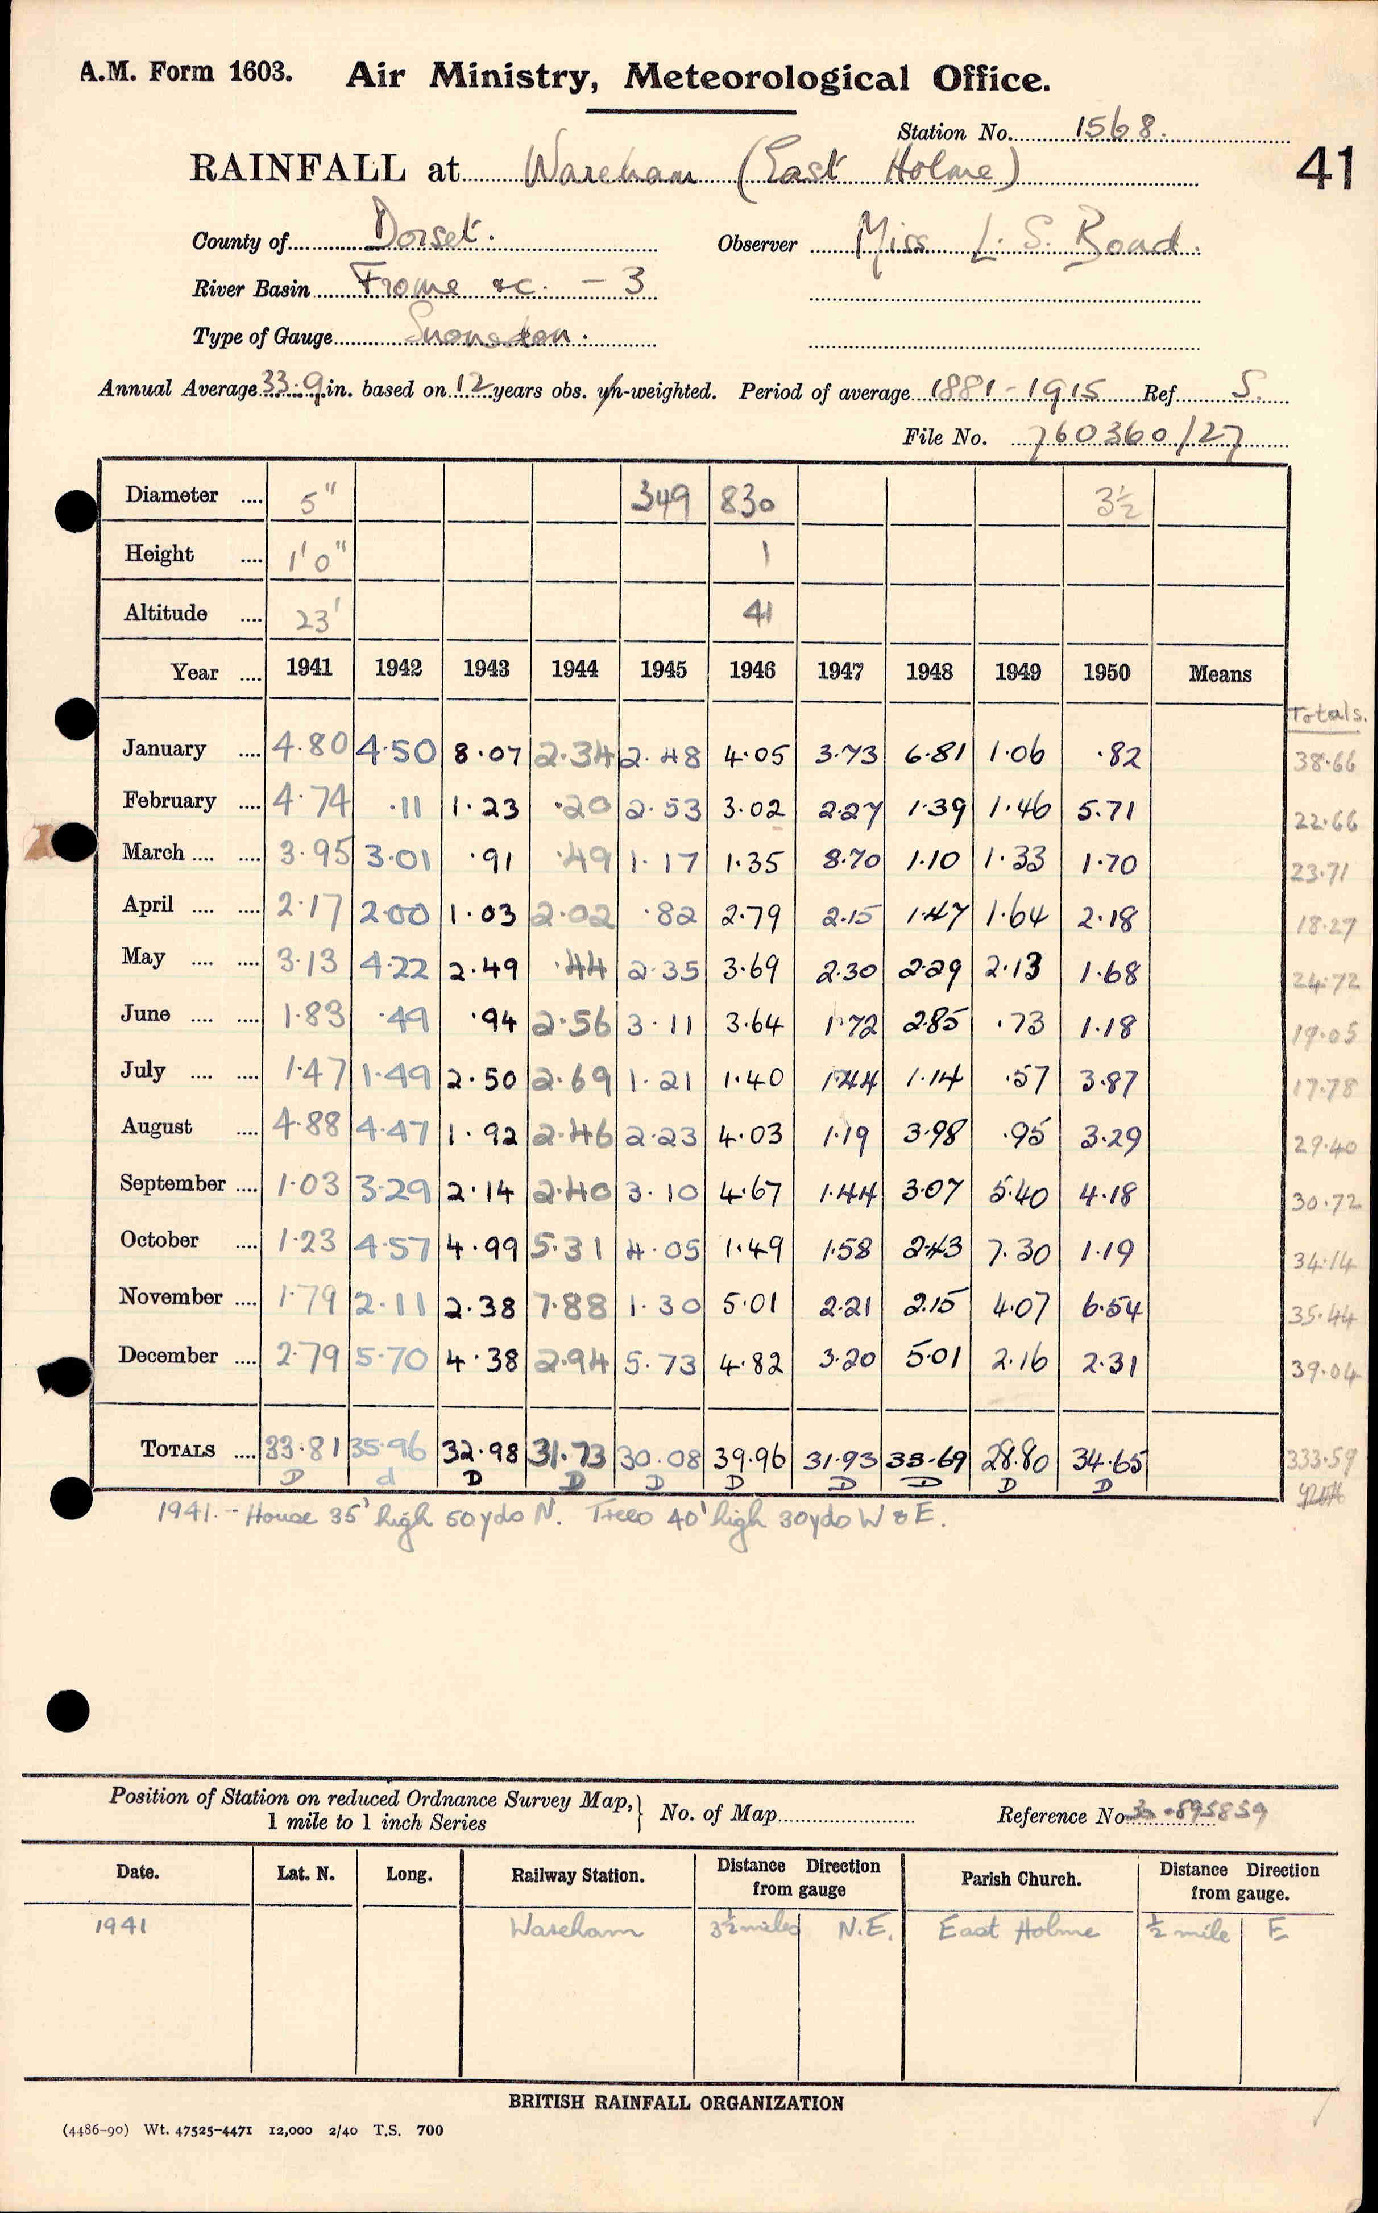 A.M. Form 1603. Air Ministry, Meteorological Office.
Station No. 1568.
RAINFALL at Wareham (East Holme) 41
County of Dorset. Observer Miss L. S. Board.
River Basin Frome &c. - 3
Type of Gauge Snowdon.
Annual Average 33.9 in. based on 12 years obs. un-weighted. Period of average 1881-1915 Ref S.
File No. 760360/27
Diameter .... 5" 349 830 3½
Height .... 1'0" 1
Altitude .... 23' 41
Year .... 1941 1942 1943 1944 1945 1946 1947 1948 1949 1950 Means
Totals.
January .... 4.80 4.50 8.07 2.34 2.48 4.05 3.73 6.81 1.06 .82 38.66
February .... 4.74 .11 1.23 .20 2.53 3.02 2.27 1.39 1.46 5.71 22.66
March .... .... 3.95 3.01 .91 .49 1.17 1.35 8.70 1.10 1.33 1.70 23.71
April .... .... 2.17 2.00 1.03 2.02 .82 2.79 2.15 1.47 1.64 2.18 18.27
May .... .... 3.13 4.22 2.49 .44 2.35 3.69 2.30 2.29 2.13 1.68 24.72
June .... .... 1.83 .49 .94 2.56 3.11 3.64 1.72 2.85 .73 1.18 19.05
July .... .... 1.47 1.49 2.50 2.69 1.21 1.40 1.44 1.14 .57 3.87 17.78
August .... 4.88 4.47 1.92 2.46 2.23 4.03 1.19 3.98 .95 3.29 29.40
September .... 1.03 3.29 2.14 2.40 3.10 4.67 1.44 3.07 5.40 4.18 30.72
October .... 1.23 4.57 4.99 5.31 4.05 1.49 1.58 2.43 7.30 1.19 34.14
November .... 1.79 2.11 2.38 7.88 1.30 5.01 2.21 2.15 4.07 6.54 35.44
December .... 2.79 5.70 4.38 2.94 5.73 4.82 3.20 5.01 2.16 2.31 39.04
TOTALS .... 33.81 35.96 32.98 31.73 30.08 39.96 31.93 33.69 28.80 34.65 333.59
D d D D D D D D D D
1941. - House 35' high 50 yds N. Trees 40' high 30 yds W & E.
Position of Station on reduced Ordnance Survey Map,
1 mile to 1 inch Series
No. of Map
Reference No. 30.895859
Date. Lat. N. Long. Railway Station. Distance Direction from gauge Parish Church. Distance Direction from gauge.
1941 Wareham 3½ miles N.E. East Holme ½ mile E
BRITISH RAINFALL ORGANIZATION
(4486-90) Wt. 47525-4471 12,000 2/40 T.S. 700